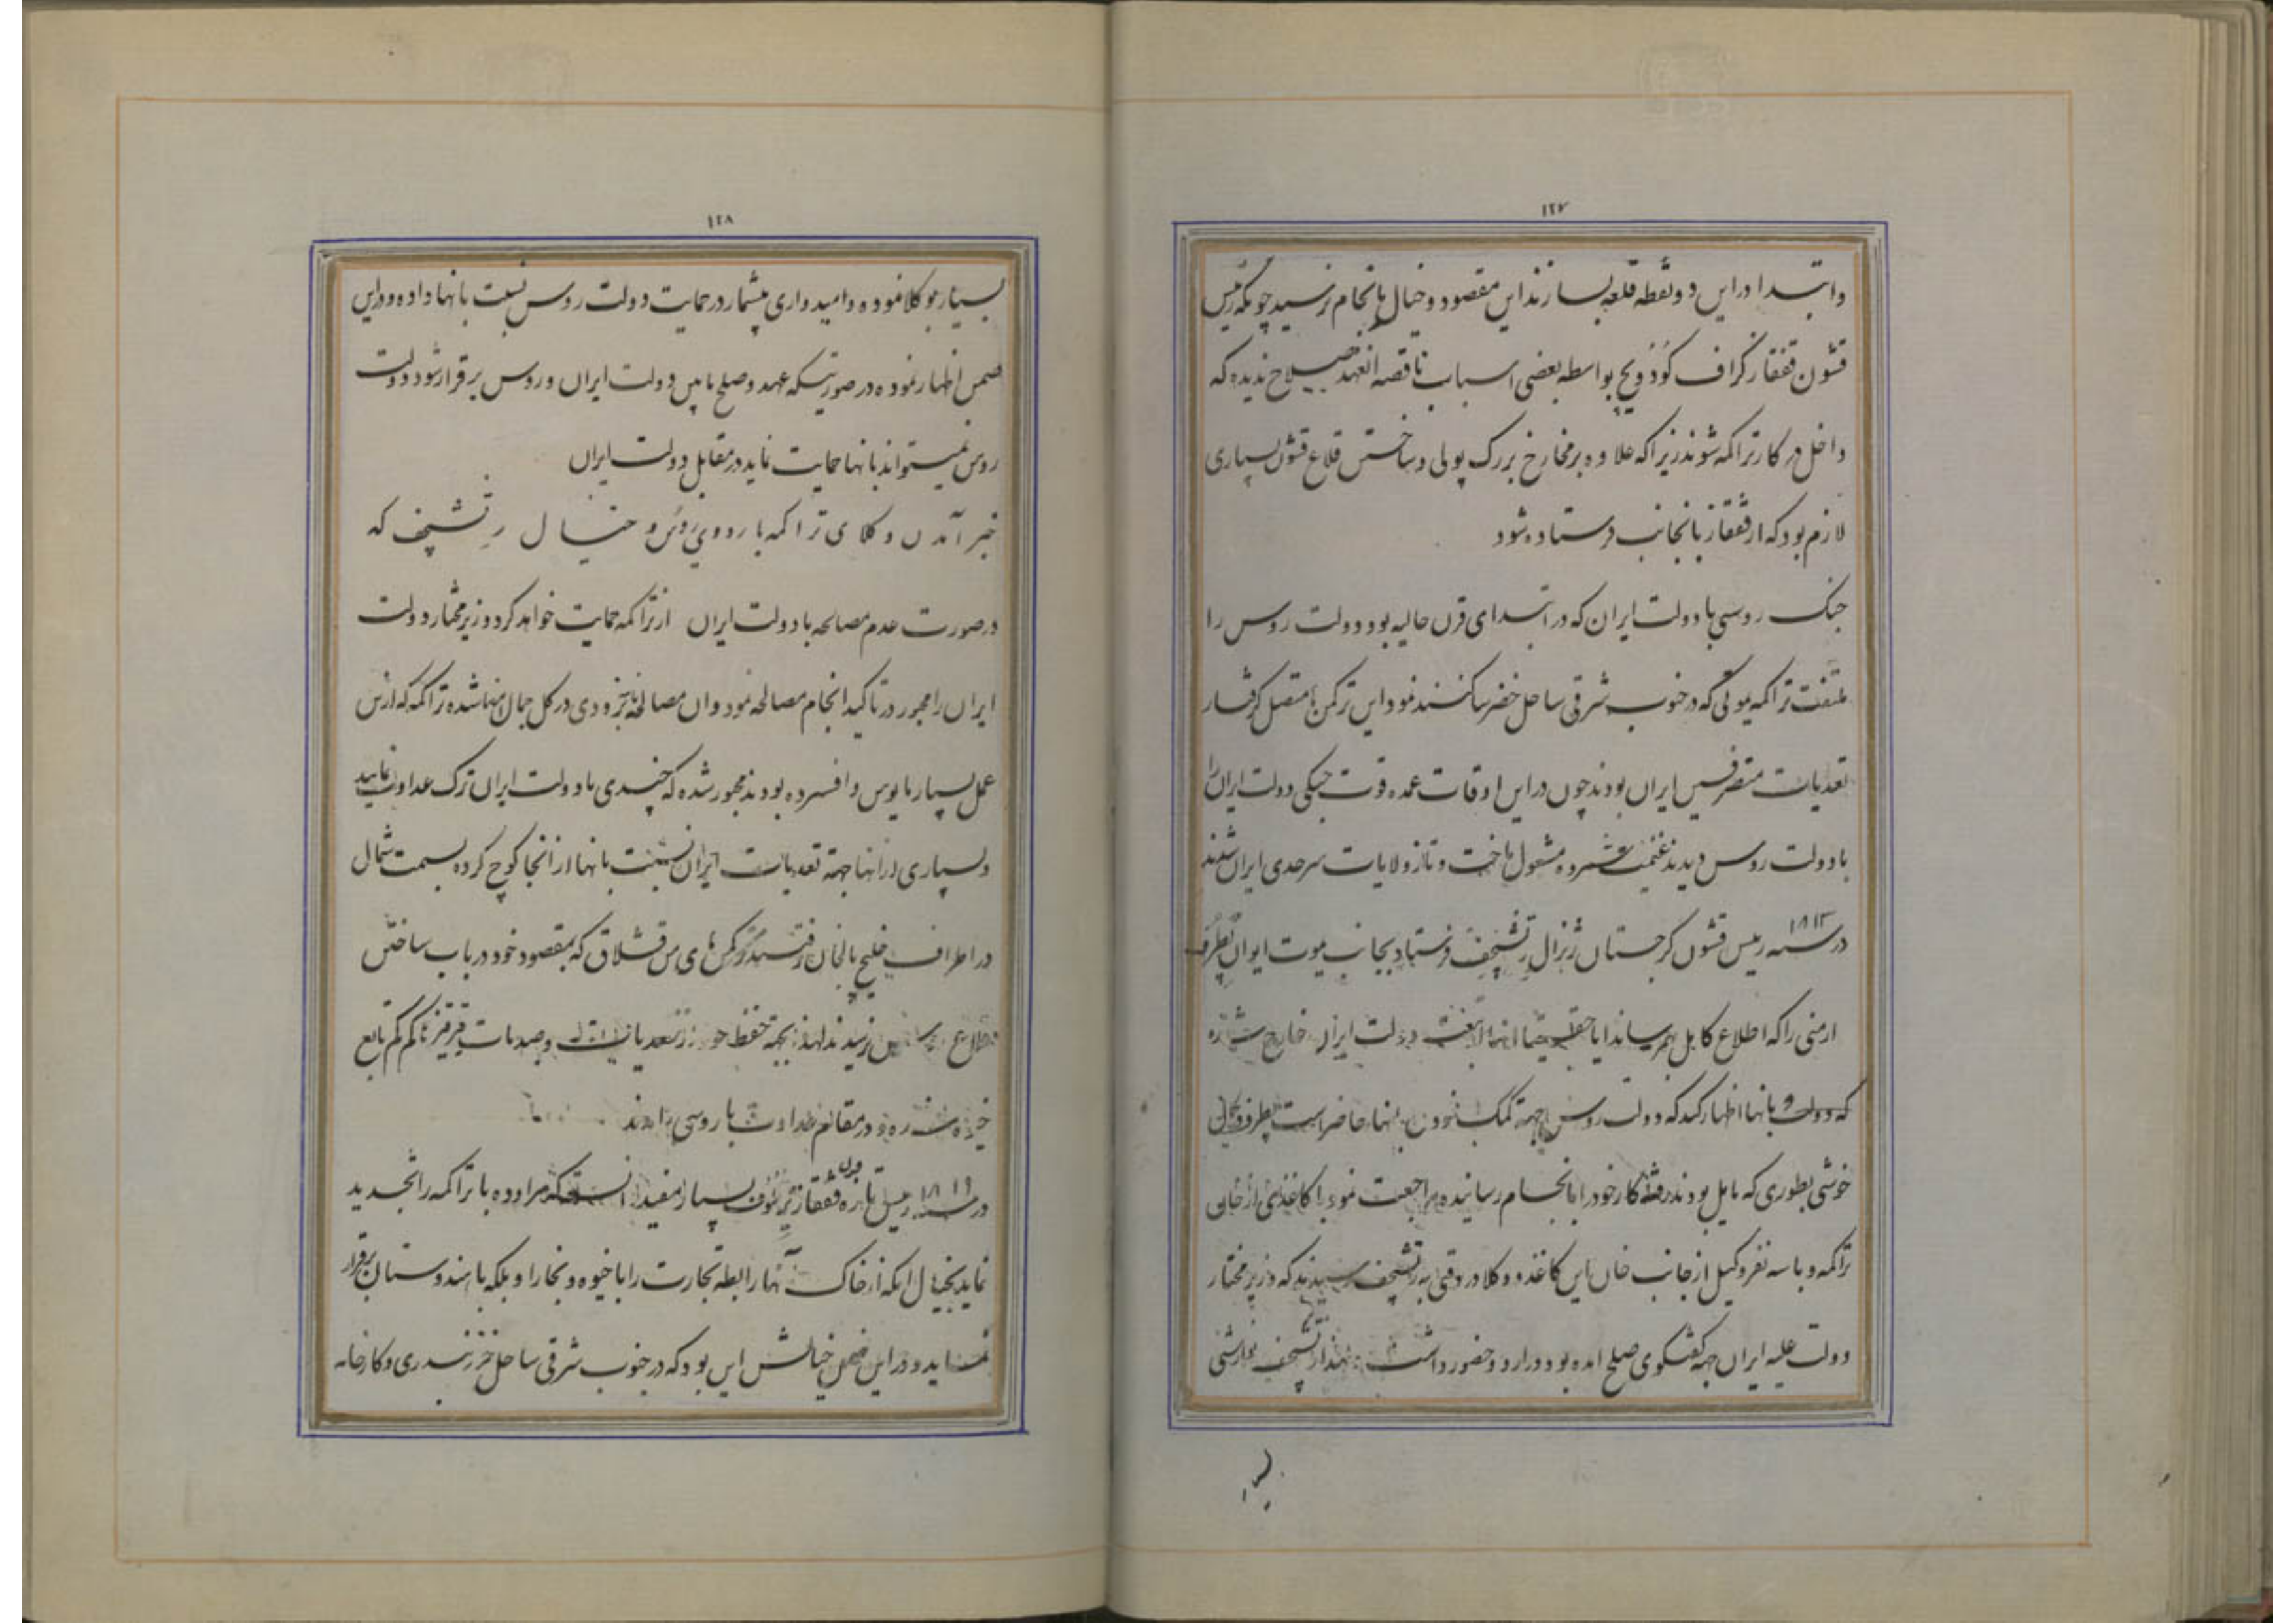 ۱۲۷
وابتدا در این دو نقطه قلعه بسازند این مقصود و خیال بانجام نرسید چونکه رئیس
قشون قفقاز گراف گودویچ بواسطه بعضی اسباب ناقصه انعهد صلاح ندیده که
داخل در کار تراکمه شوند زیرا که علاوه بر مخارج بزرگ پولی و ساختن قلاع قشون بسیاری
لازم بود که از قفقاز بانجانب فرستاده شود
جنک روسی با دولت ایران که در ابتدای قرن حالیه بود دولت روس را
ملتفت تراکمه یموتی که در جنوب شرقی ساحل خضر ساکنند نمود این ترکمن ها متصل گرفتار
تعدیات متصرفین ایران بودند چون در این اوقات عمده قوت جنگی دولت ایران را
با دولت روس دیدند غنیمت شمرده مشغول تاخت و تاز ولایات سرحدی ایران شدند
در سنه ۱۸۱۳ رئیس قشون گرجستان ژنرال رتشچف فرستاد بجانب یموت ایوان
ارمنی را که اطلاع کامل بهمرساند ایا حقیقتا انها دولت ایران خارج شده
که دولت و بانها اظهار کند که دولت روس بجهة کمک نمودن بانها حاضر است
خوشی بطوری که مایل بودند رفته کار خود را بانجام رسانیده مراجعت نمود با کاغذی از خان
تراکمه و با سه نفر وکیل از جانب خان این کاغذ و وکلا در وقتی به رتشچف رسیدند که وزیر مختار
دولت علیه ایران جهة گفتگوی صلح امده بود و در اردو حضور داشت لهذا رتشچف نوازشی
بسیار
۱۲۸
بسیار بوکلا نموده و امیدواری بیشمار در حمایت دولت روس نسبت بانها داده و در این
ضمن اظهار نموده در صورتیکه عهد و صلح مابین دولت ایران و روس برقرار شود دولت
روس نمیتواند بانها حمایت نماید در مقابل دولت ایران
خبر آمدن وکلای تراکمه باردوی روس و خیال رتشچف که
در صورت عدم مصالحه با دولت ایران از تراکمه حمایت خواهد کرد وزیر مختار دولت
ایران را مجبور در تاکید انجام مصالحه نمود و ان مصالحه بزودی در کل جهان شده تراکمه که از این
عمل بسیار مایوس و افسرده بودند مجبور شده که چندی با دولت ایران ترک عداوت نمایند
و بسیاری از انها جهة تعدیات ایران نسبت بانها از انجا کوچ کرده بسمت شمال
در اطراف خلیج بالخان رفتند ترکمن های من قشلاق که بمقصود خود در باب ساختن
قلاع نرسیدند لهذا بجهة حفظ خود از تعدیات و صدمات قرقیز ها کم کم تابع
خیوه شده و در مقام عداوت با روسی
در سنه ۱۸۱۹ رئیس تازه قشون قفقاز یرملوف بسیار مفید دانست که مراوده با تراکمه را تجدید
نماید بخیال اینکه از خاک آنها رابطه تجارت را با خیوه و بخارا و بلکه با هندوستان برقرار
نماید و در این ضمن خیالش این بود که در جنوب شرقی ساحل خزر بندری و کارخانه